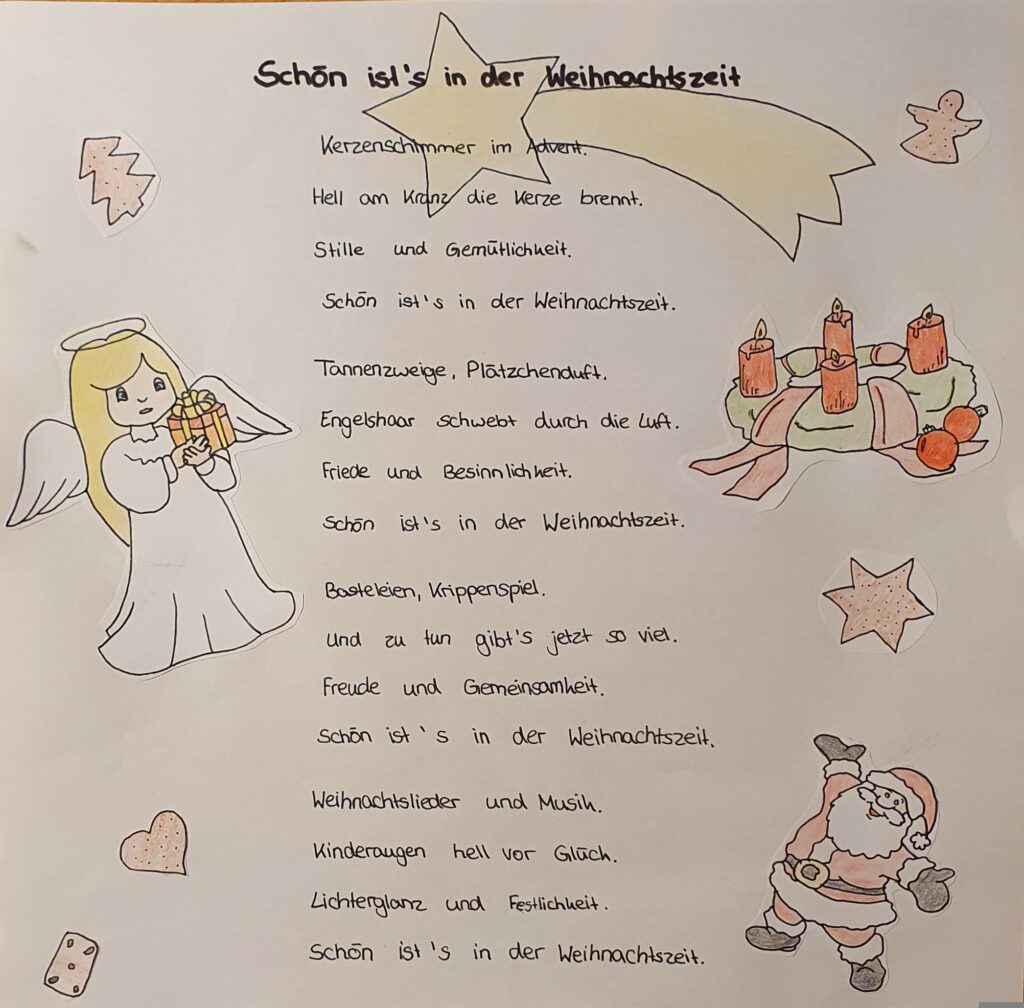 Schön ist's in der Weihnachtszeit
Kerzenschimmer im Advent.
Hell am Kranz die Kerze brennt.
Stille und Gemütlichkeit.
Schön ist's in der Weihnachtszeit.
Tannenzweige, Plätzchenduft.
Engelshaar schwebt durch die Luft.
Friede und Besinnlichkeit.
Schön ist's in der Weihnachtszeit.
Basteleien, Krippenspiel.
Und zu tun gibt's jetzt so viel.
Freude und Gemeinsamheit.
Schön ist's in der Weihnachtszeit.
Weihnachtslieder und Musik.
Kinderaugen hell vor Glück.
Lichterglanz und Festlichkeit.
Schön ist's in der Weihnachtszeit.